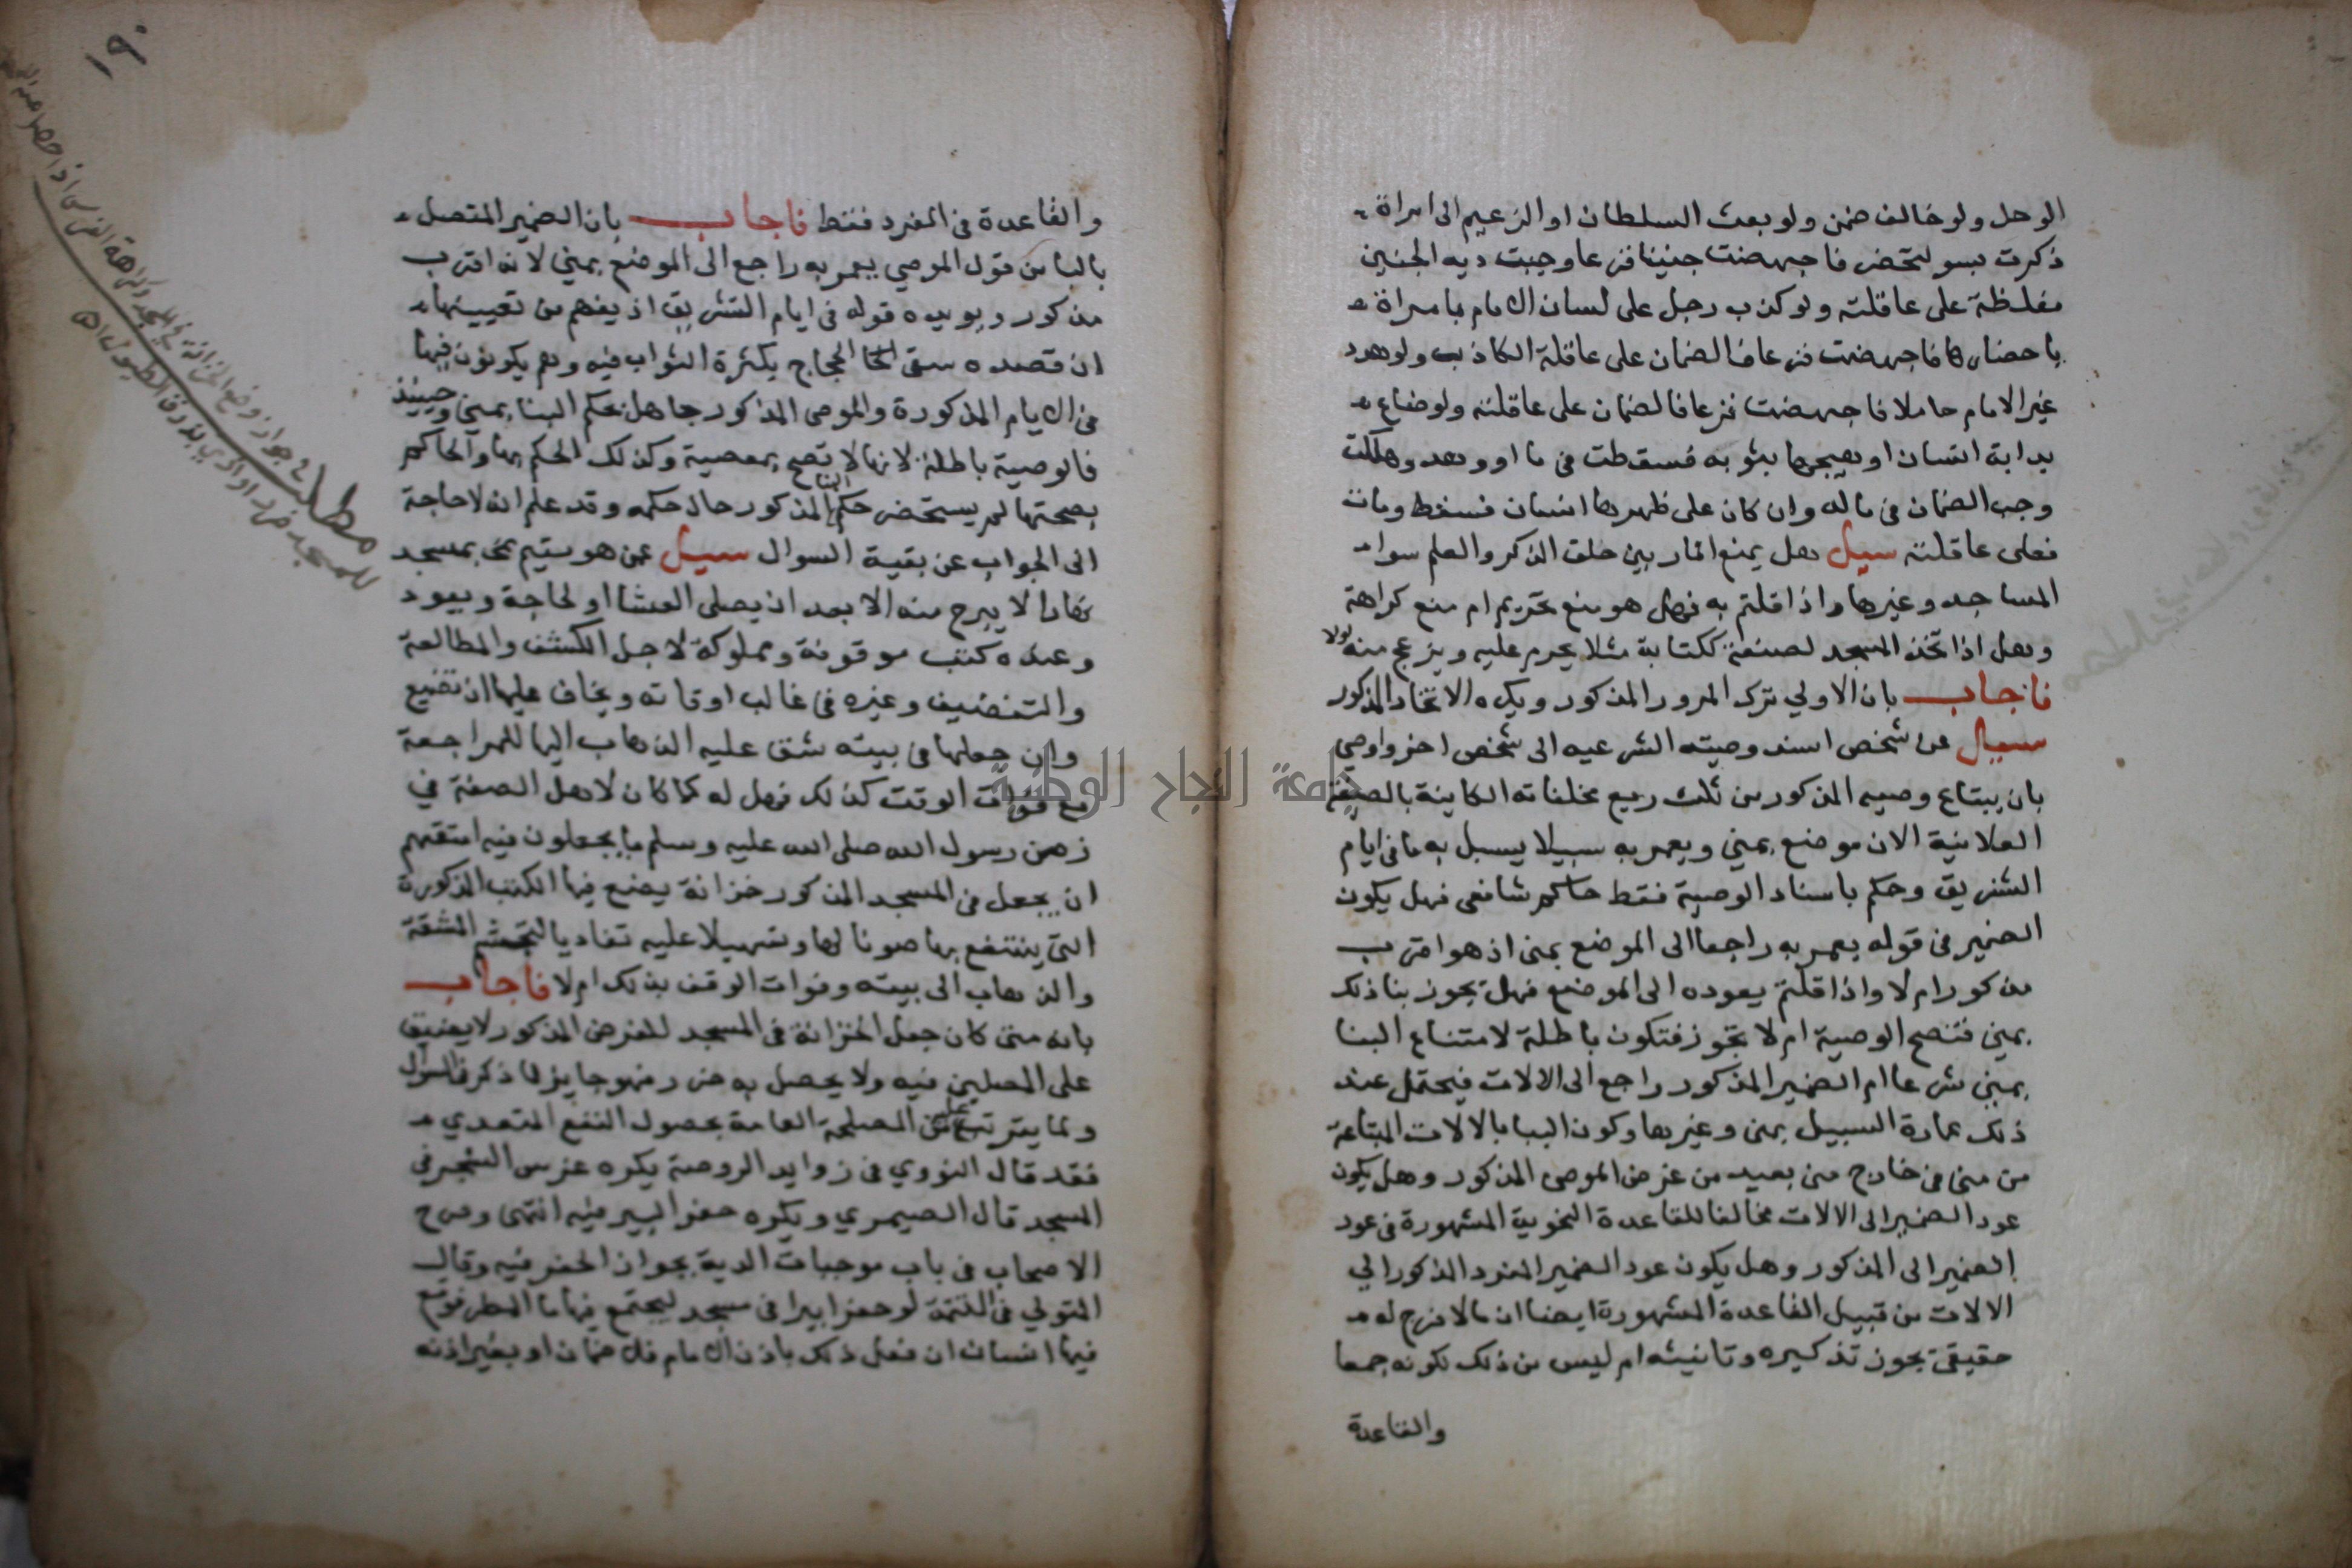 الوحل ولو خالف ضمن ولو بعث السلطان او الزعيم الى امراة
ذكرت بسو لتحضر فاجهضت جنينا فزعا وجبت دية الجنين
مغلظة على عاقلته ولو كذب رجل على لسان الامام بامراة
باحضارها فاجهضت فزعا فالضمان على عاقلة الكاذب ولو هدد
غير الامام حاملا فاجهضت فزعا فالضمان على عاقلته ولو ضاع
بدابة انسان او هيجها بثوبه فسقطت في ما او وهد وهلكت
وجب الضمان في ماله وان كان على ظهرها انسان فسقط ومات
فعلى عاقلته سيل هل يمنع المار بين حلق الذكر والعلم سوا
المساجد وغيرها واذا قلتم به فهل هو منع تحريم ام منع كراهة
وهل اذا اتخذ المسجد لصنعة ككتابة مثلا يحرم عليه ويزعج منه اولا
فاجاب بان الاولي ترك المرور المذكور ويكره الاتخاذ المذكور
سيل عن شخص اسند وصيته الشرعيه الى شخص اخر واوصي
بان يبتاع وصيه المذكور من ثلث ريع مخلفاته الكاينة بالصفة
العلانية الان موضع بمني ويعمر به سبيلا يسبل به ما في ايام
التشريق وحكم باسناد الوصية فقط حاكم شافعي فهل يكون
الضمير في قوله يعمر به راجعا الى الموضع بمنى اذ هو اقرب
مذكور ام لا واذا قلتم يعوده الى الموضع فهل يجوز بنا ذلك
بمني فتصح الوصية ام لا يجوز فتكون باطلة لامتناع البنا
بمني شرعا ام الضمير المذكور راجع الى الالات فيحتمل عند
ذلك عمارة السبيل بمنى وغيرها وكون البنا بالالات المبتاعة
من منى في خارج منى بعيد من غرض الموصى المذكور وهل يكون
عود الضمير الى الالات مخالفا للقاعدة النحوية المشهورة في عود
الضمير الى المذكور وهل يكون عود الضمير المفرد المذكور الي
الالات من قبيل القاعدة المشهورة ايضا ان مالا فرج له
حقيقي يجوز تذكيره وتانيثه ام ليس من ذلك لكونه جمعا
والقاعدة
١٩٠
والقاعدة في المفرد فقط فاجاب بان الضمير المتصل
بالبا من قول الموصي يعمر به راجع الى الموضع بمني لانه اقرب
مذكور ويويده قوله في ايام التشريق اذ يفهم من تعيينها
ان قصده سقى الحجاج بكثرة الثواب فيه وهم يكونون فيها
في الايام المذكورة والموصى المذكور جاهل بحكم البنا بمني وحينيذ
فالوصية باطلة لانها لا تصح بمعصية وكذلك الحكم بها والحاكم
بصحتها لم يستحضر حكم البناء المذكور حال حكمه وقد علم انه لا حاجة
الى الجواب عن بقية السوال سيل عمن هو مقيم بمسجد
نهارا لا يبرح منه الا بعد ان يصلى العشا او لحاجة ويعود
وعنده كتب موقوفة ومملوكة لاجل الكشف والمطالعة
والتصنيف وغيره في غالب اوقاته ويخاف عليها ان تضيع
وان جعلها في بيته شق عليه الذهاب اليها للمراجعة
مع فوات الوقت كذلك فهل له كما كان لاهل الصفة في
زمن رسول الله صلى الله عليه وسلم ما يجعلون فيه امتعتهم
ان يجعل في المسجد المذكور خزانة يضع فيها الكتب المذكورة
التي ينتفع بها صونا لها وتسهيلا عليه تفاديا لتجشم المشقة
والذهاب الى بيته وفوات الوقت بذلك ام لا فاجاب
بانه متى كان جعل الخزانة في المسجد للغرض المذكور لا يضيق
على المصلين فيه ولا يحصل به ضرر فهو جايز لما ذكر في السوال
ولما يترتب عليه من المصلحة العامة بحصول النفع المتعدي
فقد قال النووي في زوايد الروضة يكره غرس الشجر في
المسجد قال الصيمري ويكره حفر البير فيه انتهى وصرح
الاصحاب في باب موجبات الدية بجواز الحفر فيه وقال
المتولي في التتمة لو حفر ابيرا في مسجد ليجتمع فيها ما المطر فوقع
فيها انسان ان فعل ذلك باذن الامام فلا ضمان او بغير اذنه
مطلب جواز وضع الخزانة في المسجد وكراهة الغرس
جامعة النجاح الوطنية